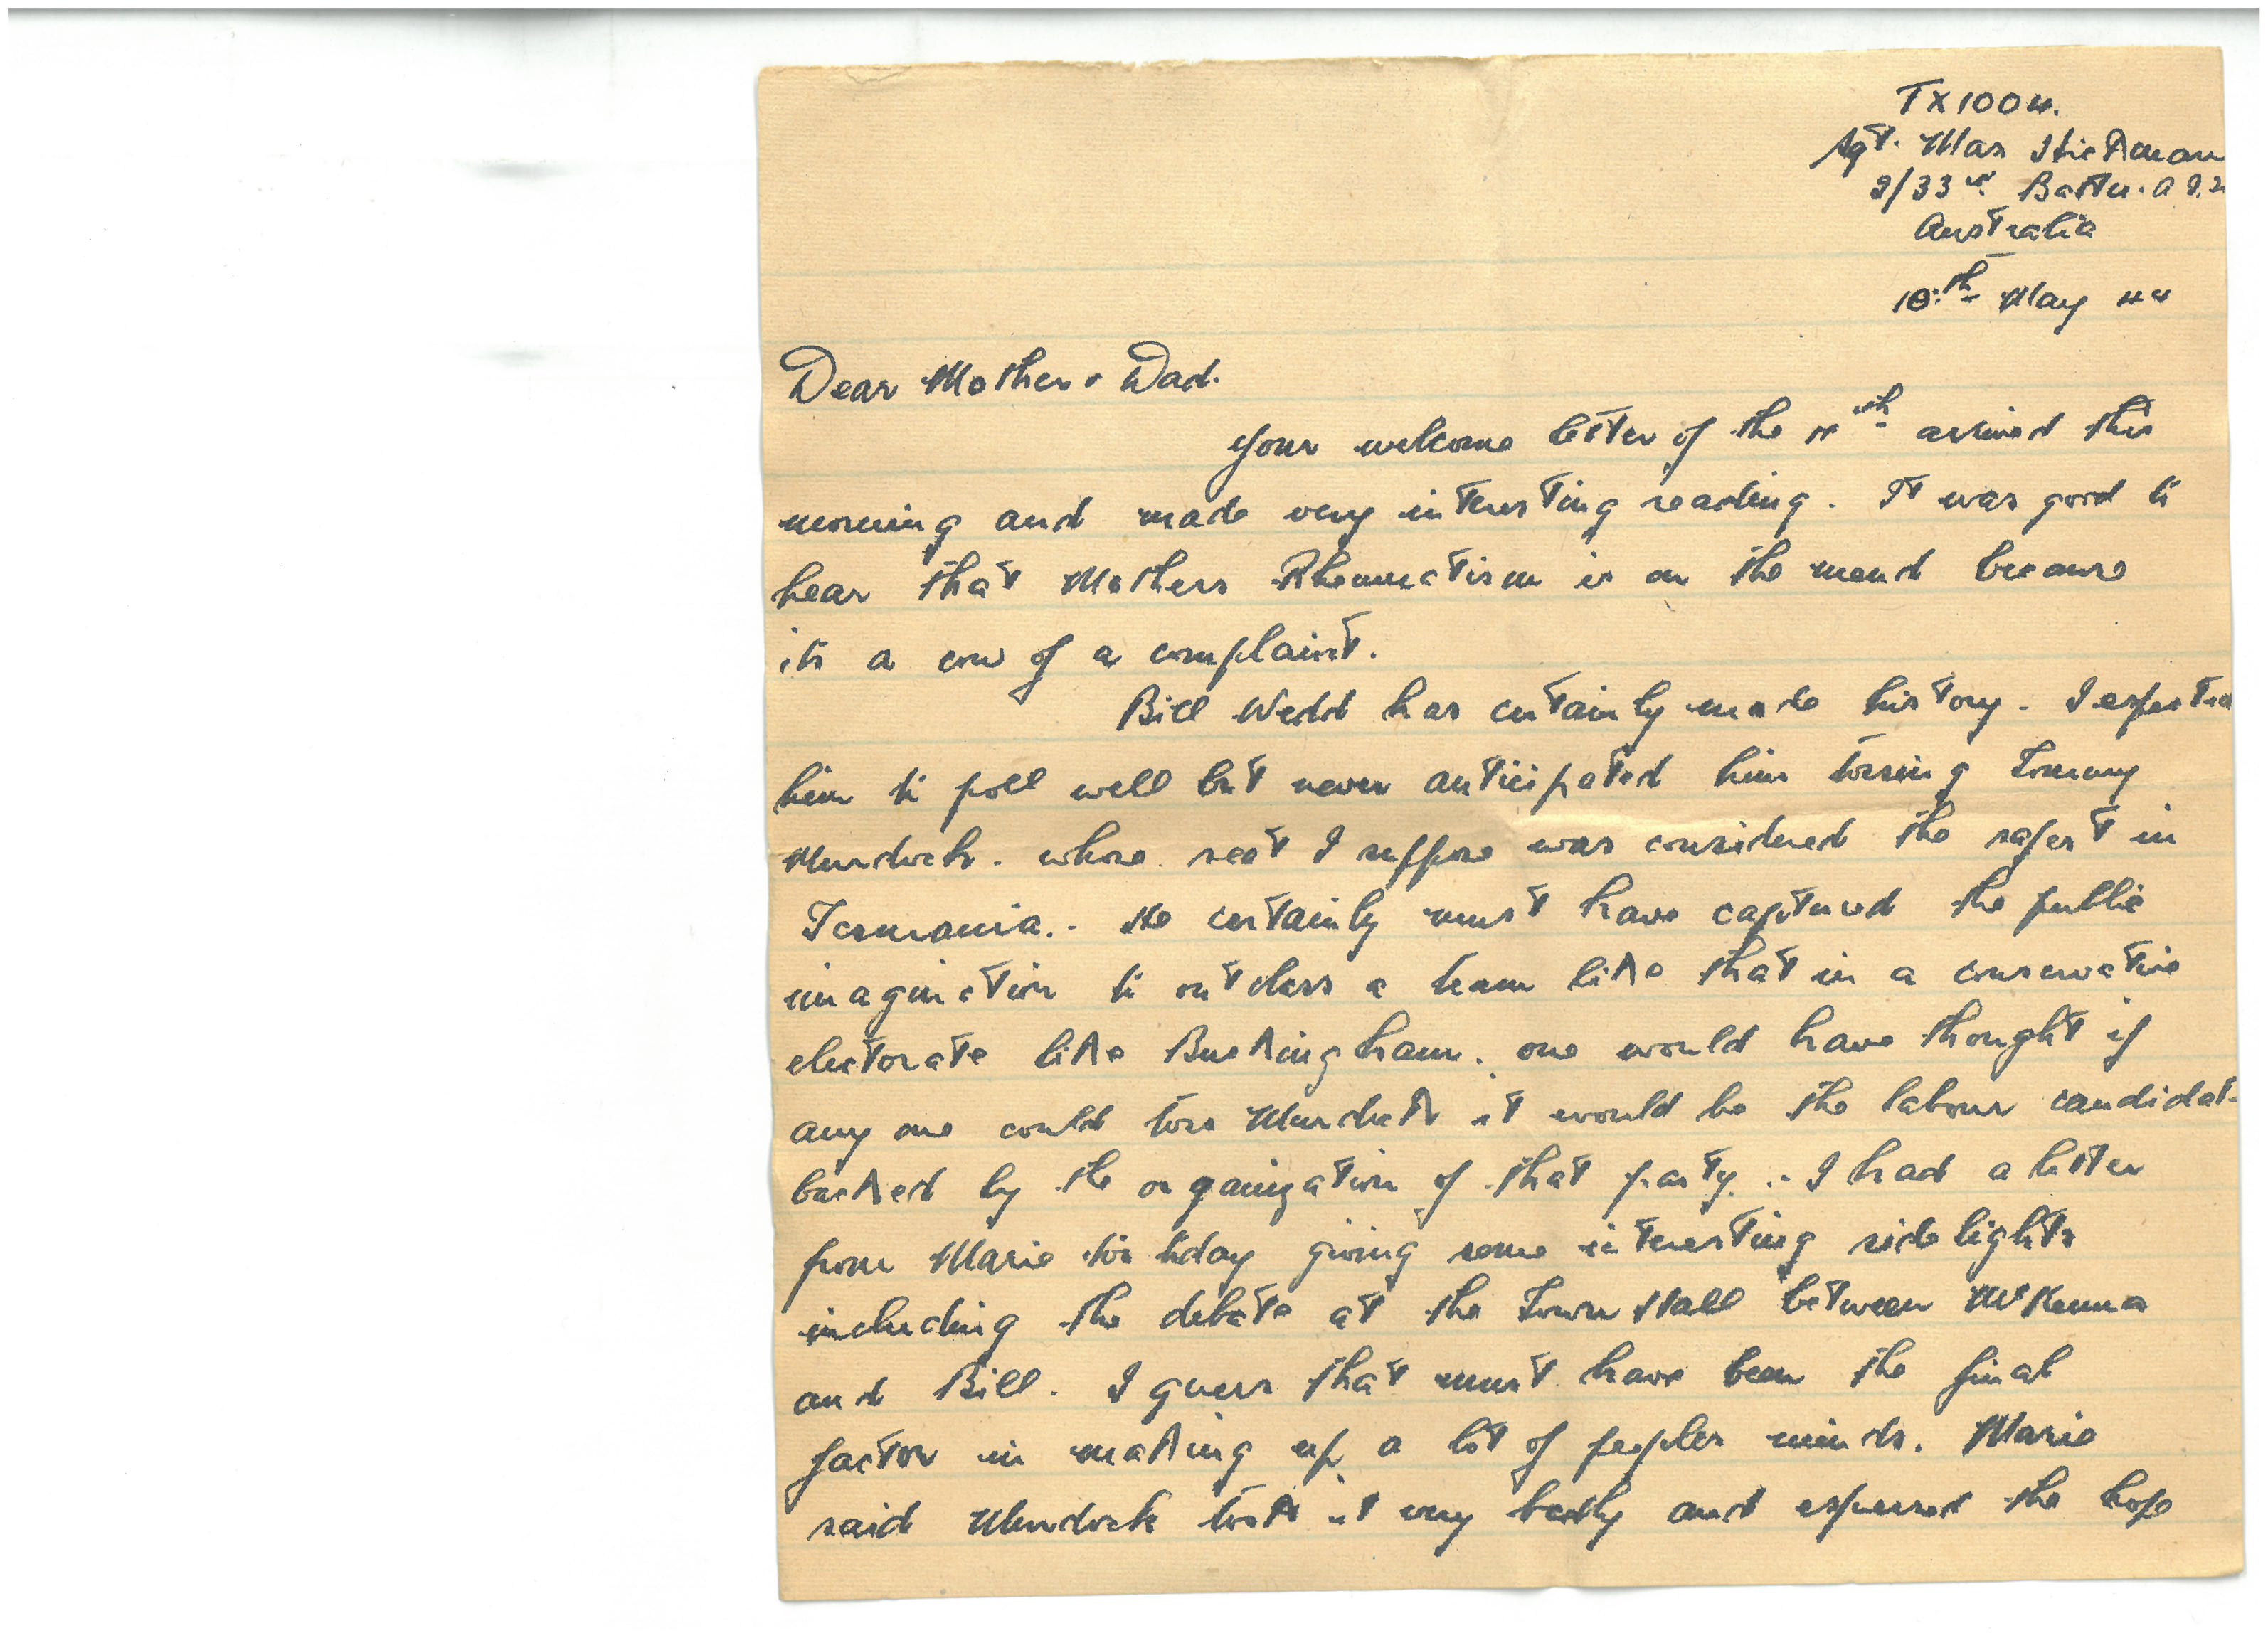 TX1004.
Sgt. Max Hickman
2/33rd Battn. A.I.
Australia
10th May 44
Dear Mother & Dad.
Your welcome letter of the arrived this
morning and made very interesting reading. It was good to
hear that Mothers Rheumatism is on the mend because
its a cow of a complaint.
Bill Wedd has certainly made history. I expected
him to poll well but never anticipated him tossing Tommy
Murdoch. whose seat I suppose was considered the safest in
Tasmania.. He certainly must have captured the public
imagination to outclass a team like that in a conservative
electorate like Buckingham. one would have thought if
any one could toss Murdoch it would be the labour candidate
backed by the organization of that party .. I had a letter
from Marie today giving some interesting side lights
including the debate at the Town Hall between McKenna
and Bill. I guess that must have been the final
factor in making up a lot of peoples minds. Marie
said Murdock took it very badly and expressed the hope